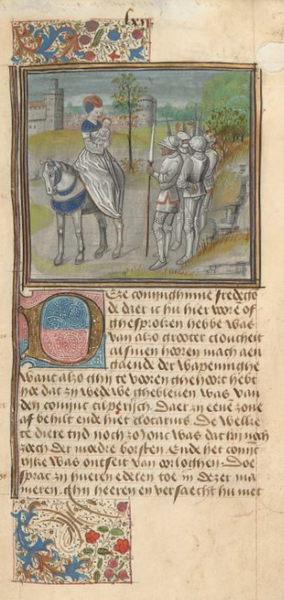 lxii
Eze conninghinne fredegō
de daer ic hu hier vore of
ghesproken hebbe was
van alzo grooter cloucheit
als men horen mach aen
gaende der wapeninghe
want alzo ghy te voren ghehoort hebt
hoe dat zy wedewe ghebleven was van
den coninc
af behilt ende hiet clotarius. De welke
te dien tyde noch zo jonc was dat hy noch
zooch de moedre borsten Ende het conin
ryke was ontset van orloghen. doe
sprac zy hueren edelen toe in dezer ma
nieren. ghy heeren en verscaect hu niet